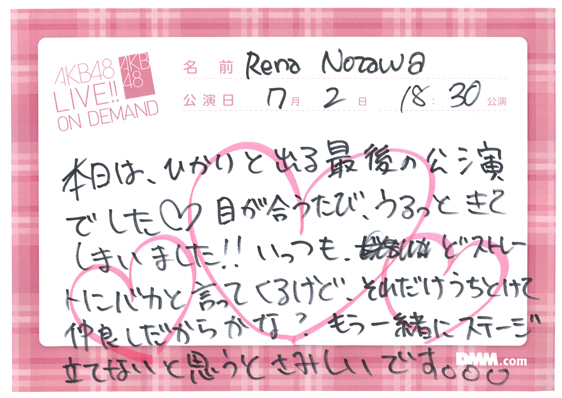 AKB48
LIVE!!
ON DEMAND
AKB
48
名 前 Rena Nozawa
公演日 7月 2日 18:30公演
本日は、ひかりと出る最後の公演
でした♡ 目が合うたび、うるっときて
しまいました!! いっつも、どストレー
トにバカと言ってくるけど、それだけうちとけて
仲良しだからかな? もう一緒にステージ
立てないと思うとさみしいです。。。
DMM.com